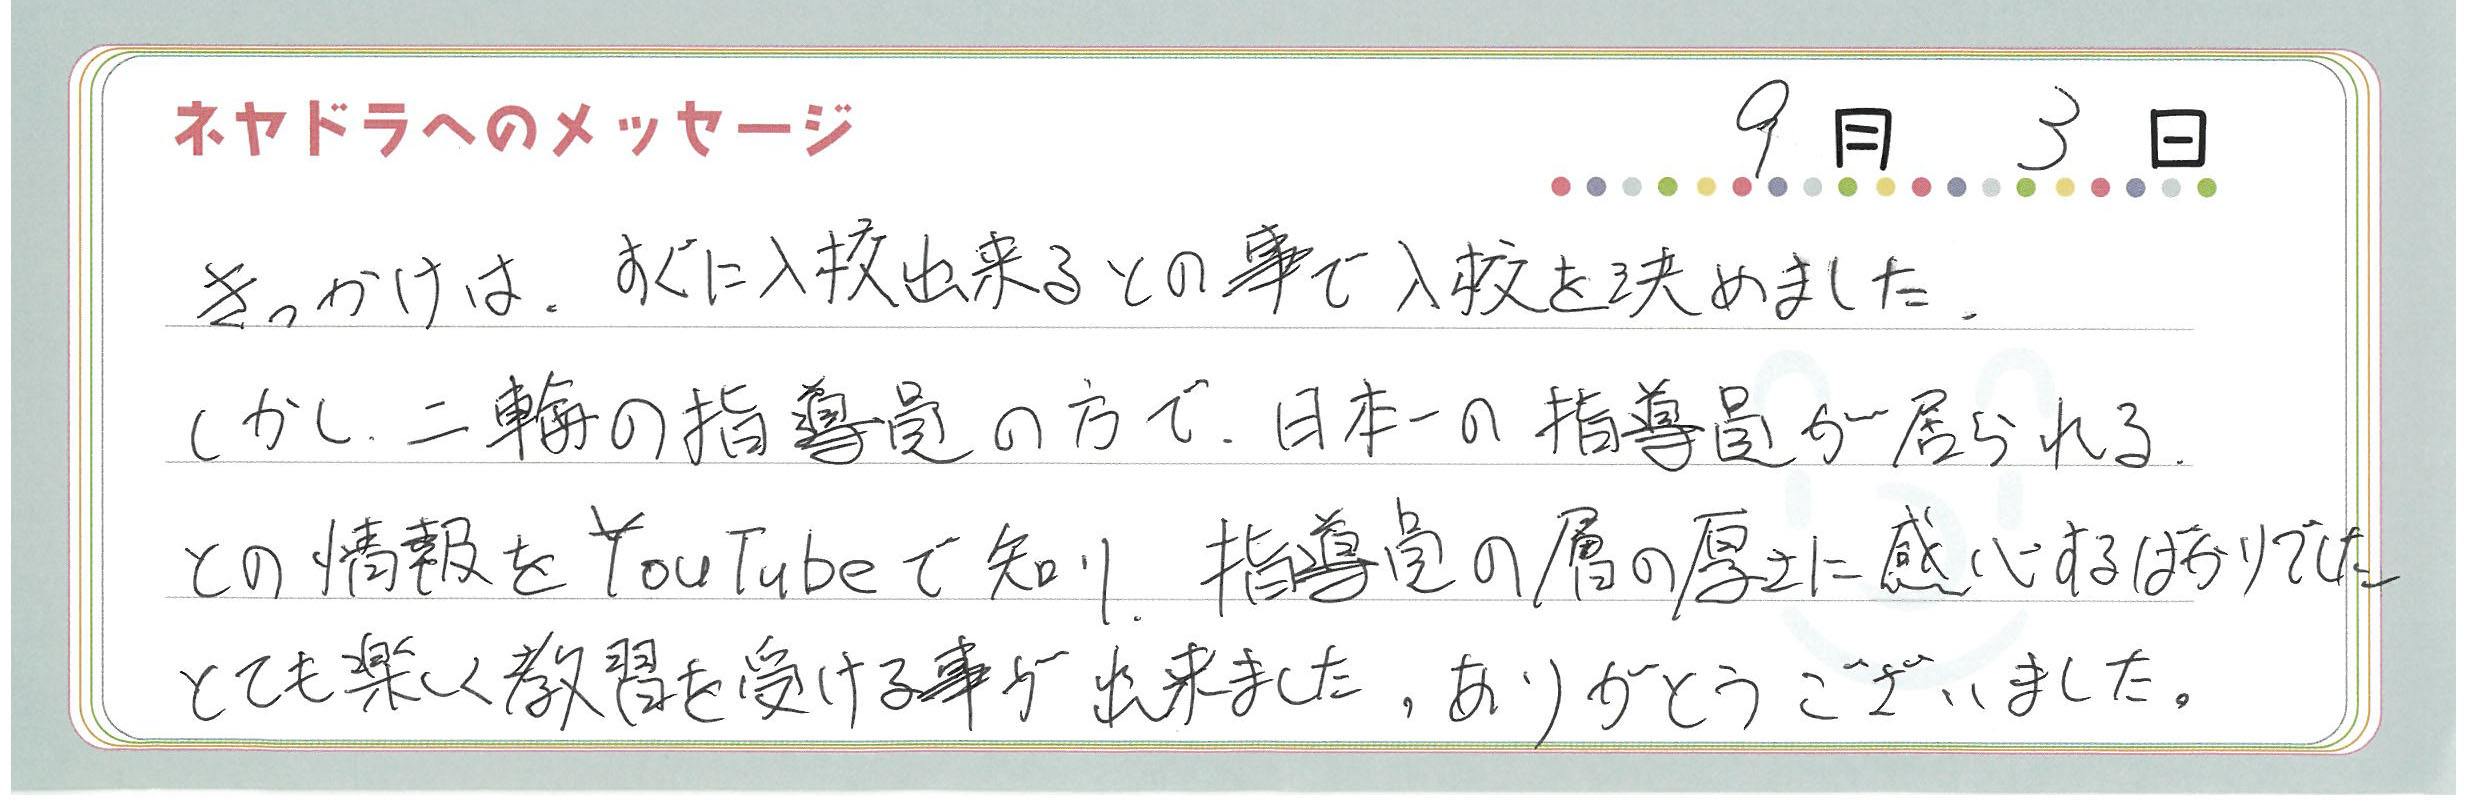 ネヤドラへのメッセージ
9月 3日
きっかけは、すぐに入校出来るとの事で入校を決めました。
しかし、二輪の指導員の方で、日本一の指導員が居られる、
との情報をYouTubeで知り、指導員の層の厚さに感心するばかりでした
とても楽しく教習を受ける事が出来ました。ありがとうございました。